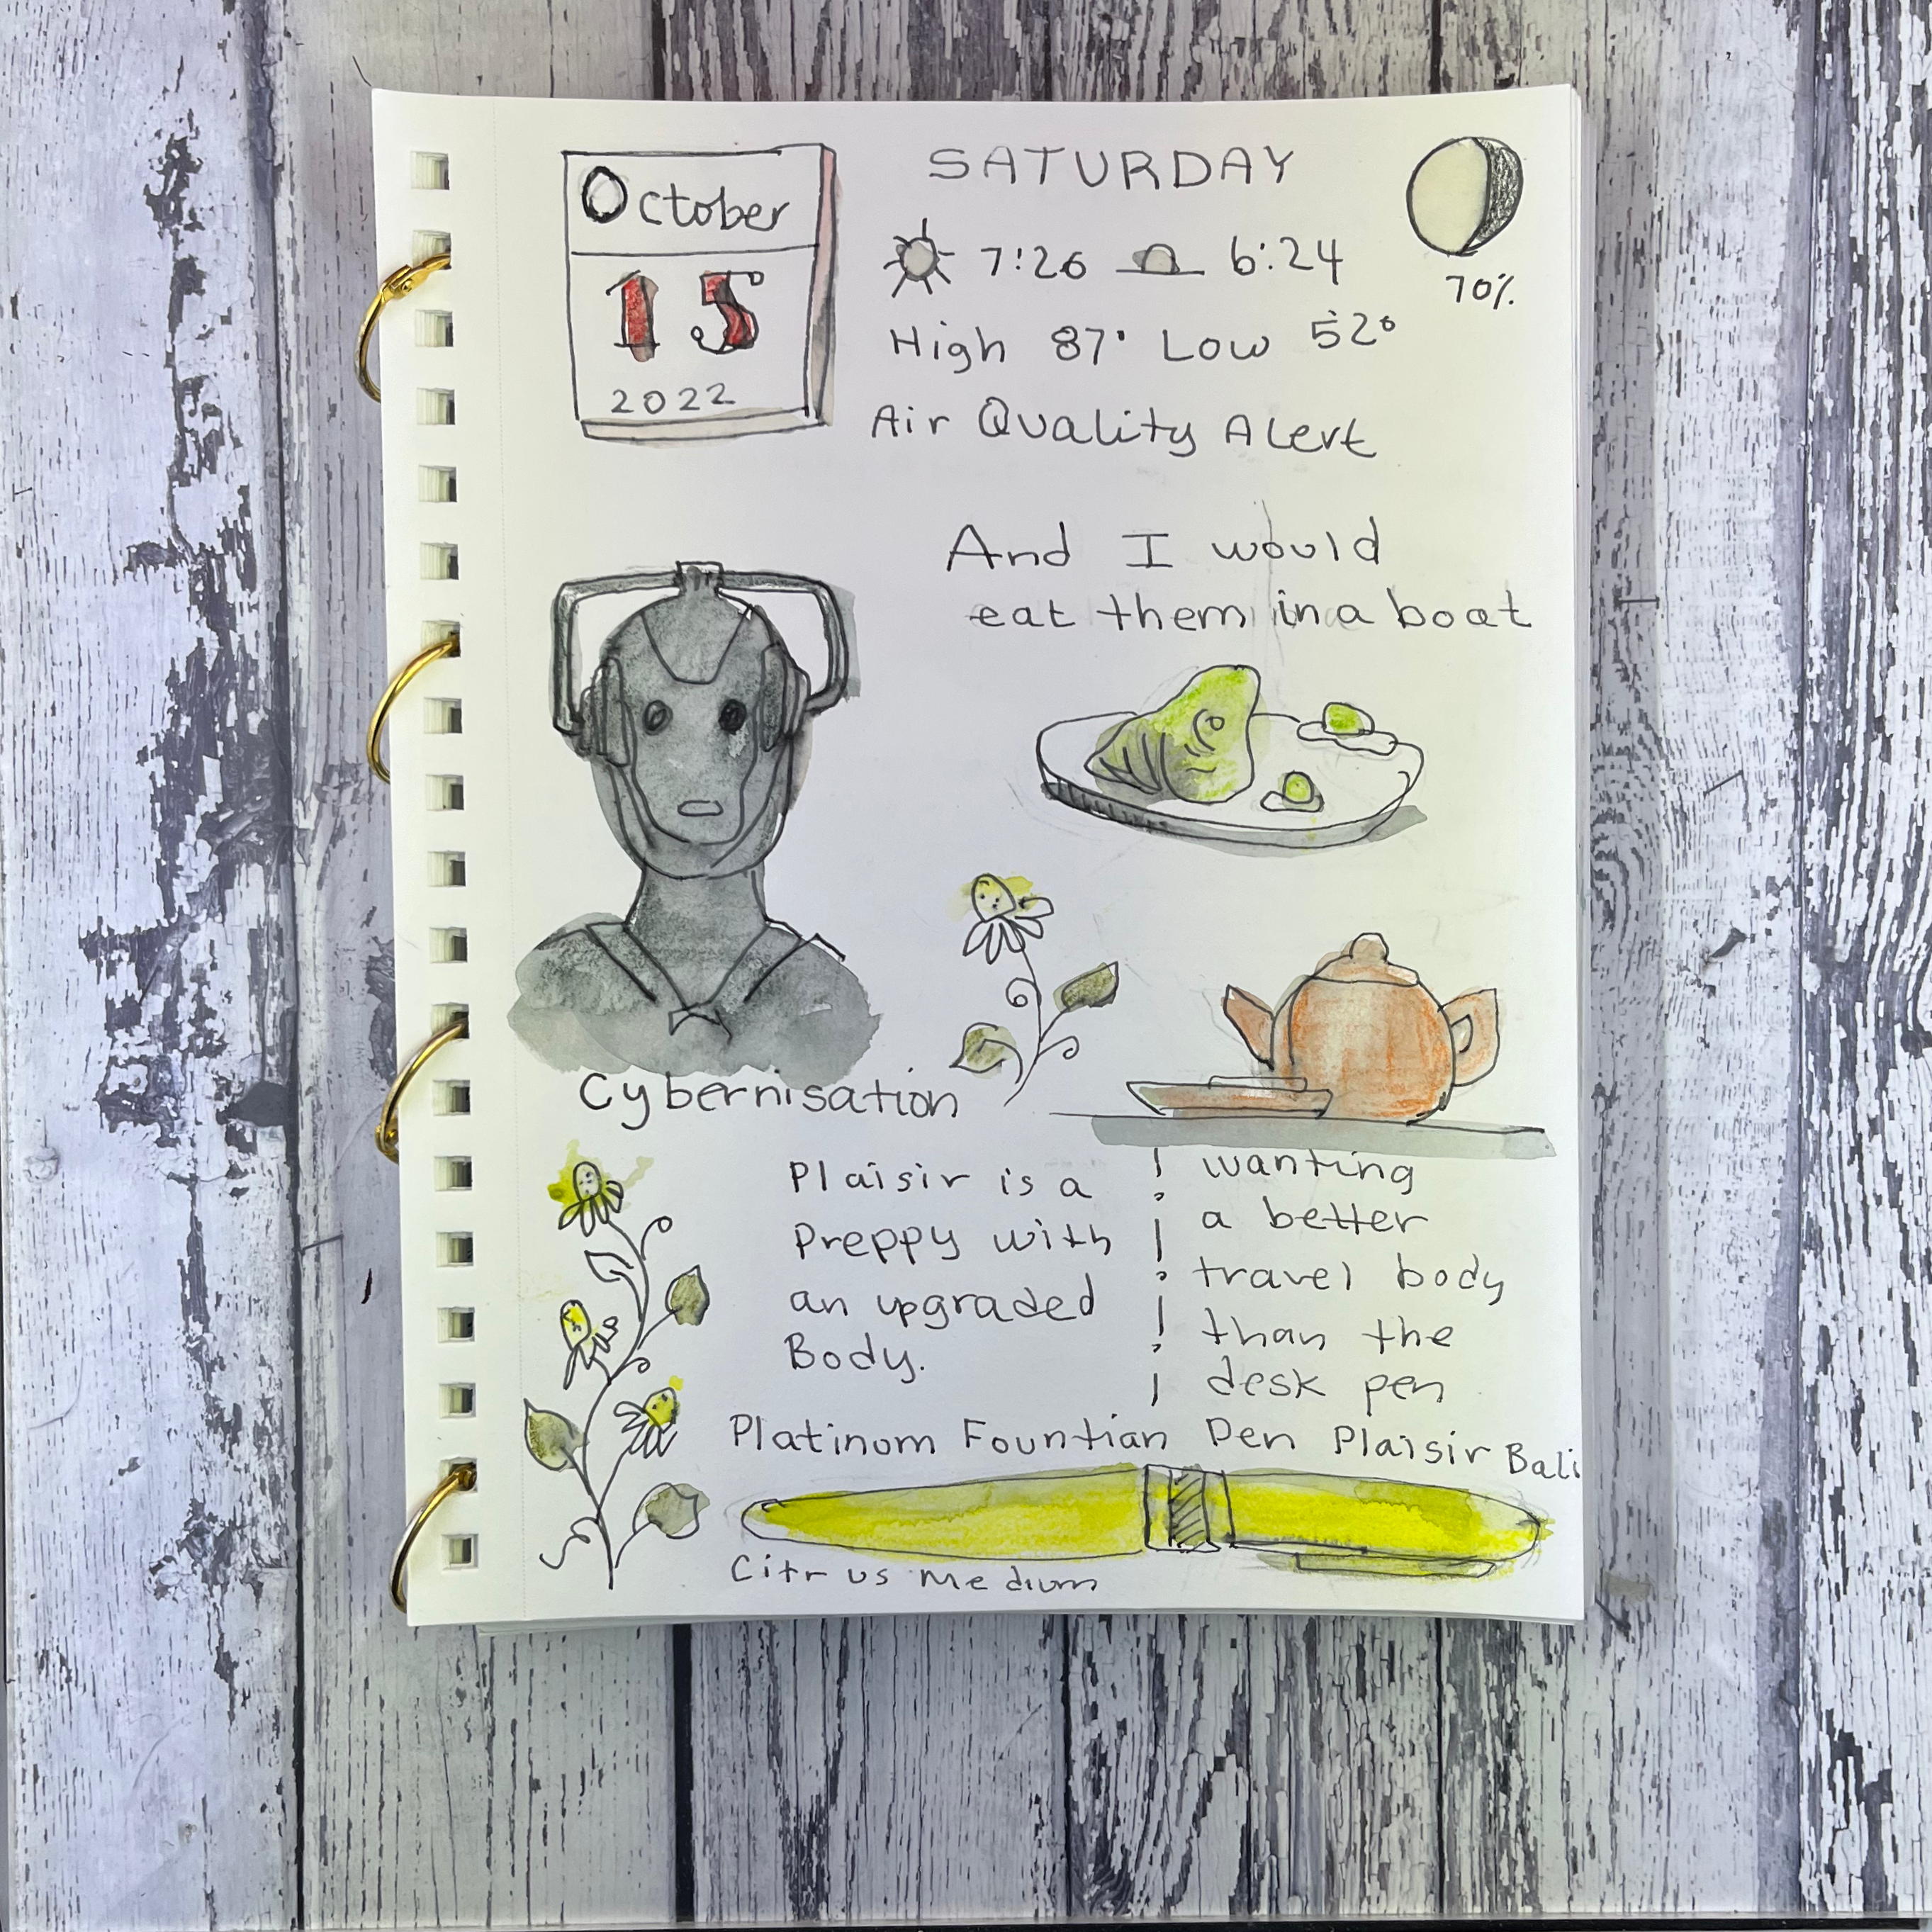 October
15
2022
SATURDAY
7:26 6:24
70%
High 87° Low 52°
Air Quality Alert
And I would
eat them in a boat
Cybernisation
Plaisir is a
Preppy with
an upgraded
Body.
wanting
a better
travel body
than the
desk pen
Platinom Fountian Pen Plaisir Bali
Citrus Medium